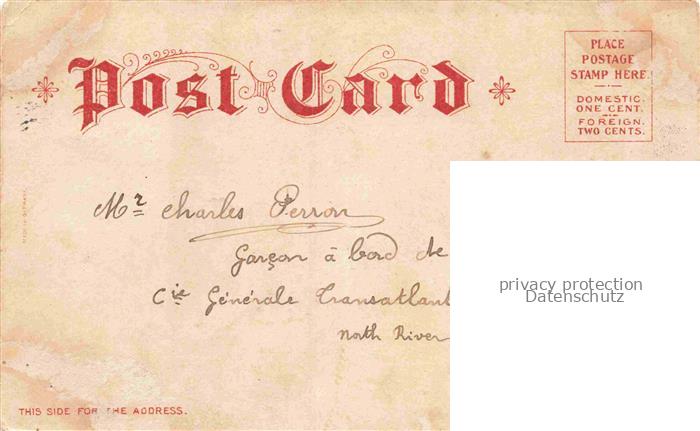 Post Card
PLACE
POSTAGE
STAMP HERE.
DOMESTIC.
ONE CENT.
FOREIGN.
TWO CENTS.
Mr Charles Perron
Garçon à bord de
Cie Générale Transatlant
North River
privacy protection
Datenschutz
THIS SIDE FOR THE ADDRESS.